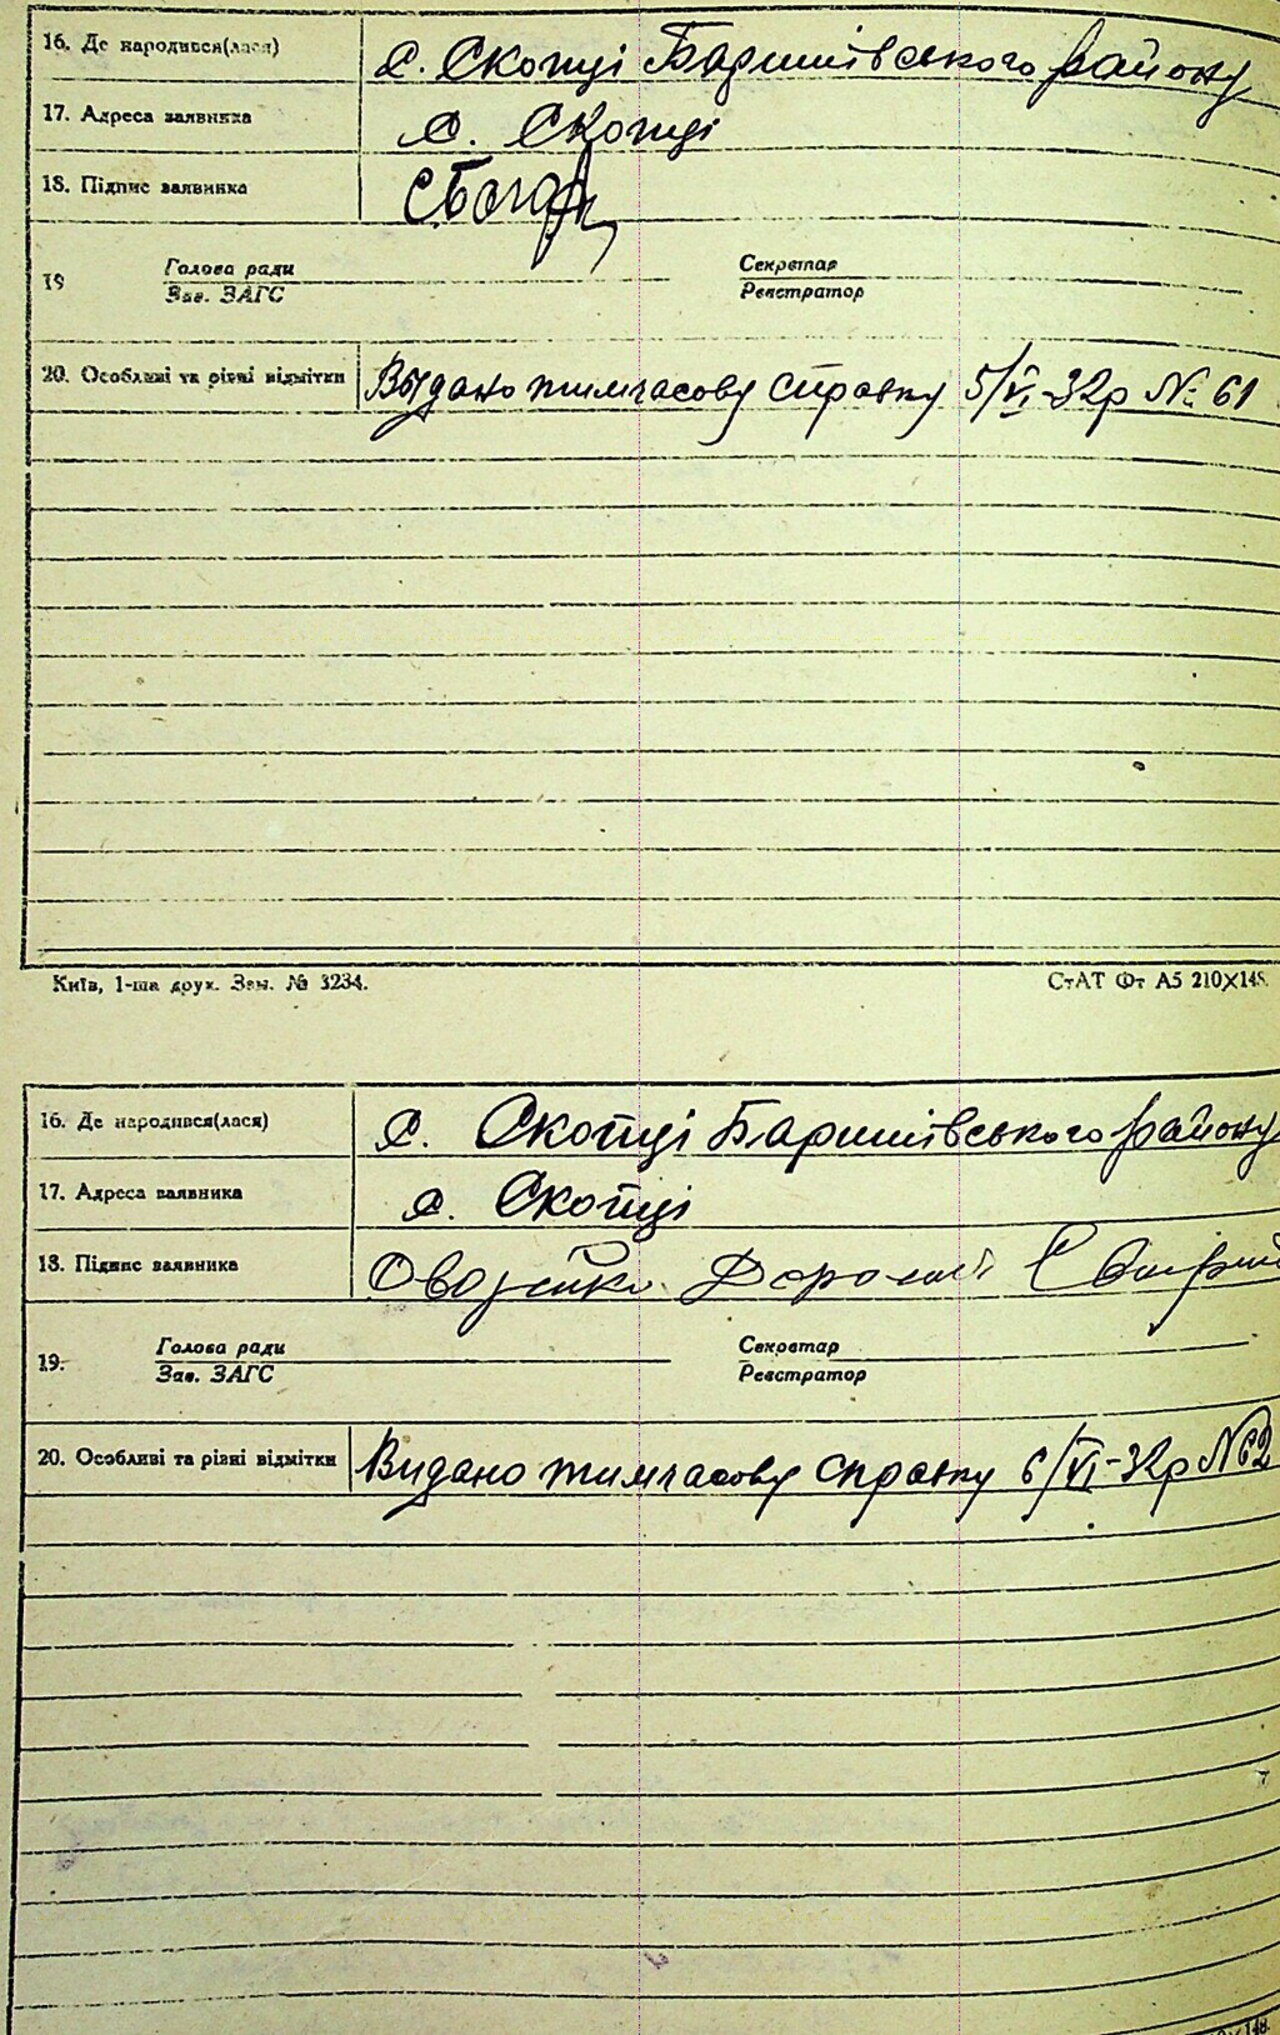 16. Де народився(лася) с. Скопці Баришівського району
17. Адреса заявника с. Скопці
18. Підпис заявника
19 Голова ради Секретар
Зав. ЗАГС Реєстратор
20. Особливі та різні відмітки Выдано тимчасову справку 5/VI-32р № 61
Київ, 1-ша друк. Зам. № 3234. СтАТ Фт А5 210×148
16. Де народився(лася) с. Скопці Баришівського району
17. Адреса заявника с. Скопці
18. Підпис заявника
19. Голова ради Секретар
Зав. ЗАГС Реєстратор
20. Особливі та різні відмітки Видано тимчасову справку 6/VI-32р №62